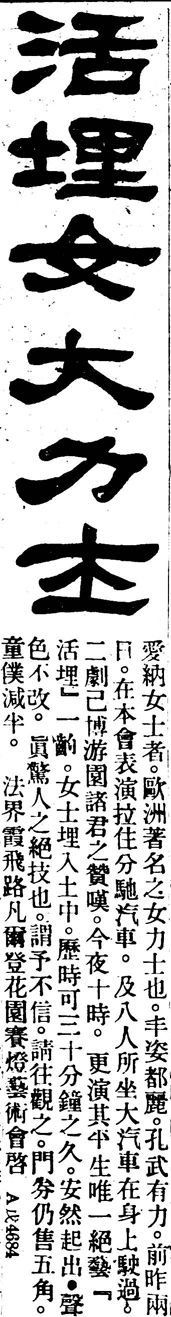 活埋女大力士
愛納女士者。歐洲著名之女力士也。丰姿都麗。孔武有力。前昨兩
日。在本會表演拉住分馳汽車。及八人所坐大汽車在身上駛過。
二劇已博游園諸君之贊嘆。今夜十時。更演其平生唯一絕藝『
活埋』一齣。女士埋入土中。歷時可三十分鐘之久。安然起出。聲
色不改。眞驚人之絕技也。謂予不信。請往觀之。門券仍售五角。
童僕減半。 法界霞飛路凡爾登花園賽燈藝術會啓 A戊4664